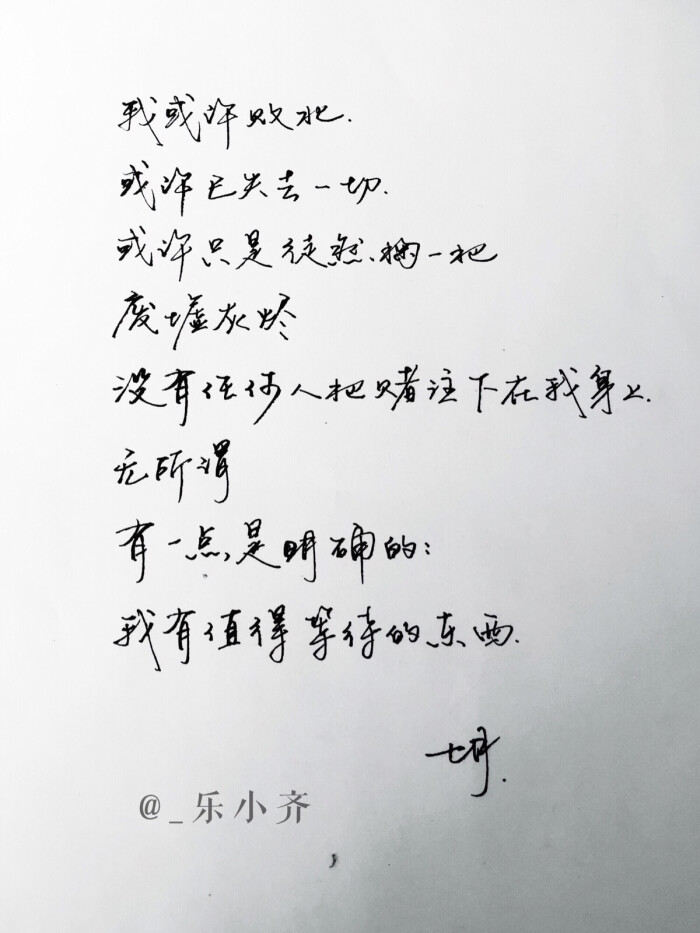 我或许败北.
或许已失去一切.
或许只是徒然掬一把
废墟灰烬
没有任何人把赌注下在我身上.
无所谓
有一点是明确的:
我有值得等待的东西.
@_乐小齐